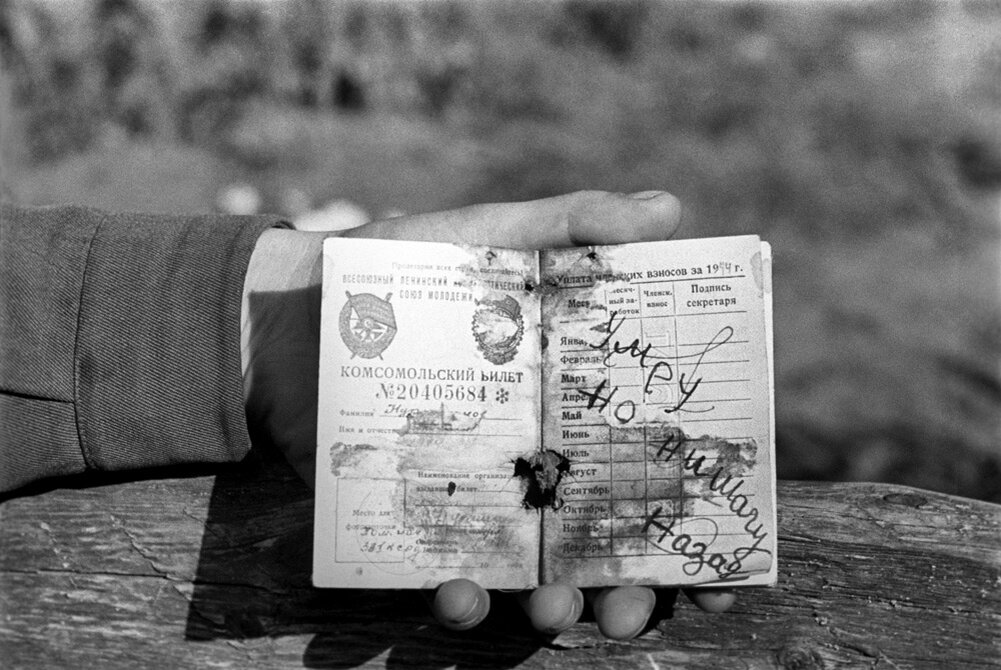 Пролетарии всех стран, соединяйтесь!
ВСЕСОЮЗНЫЙ ЛЕНИНСКИЙ
СОЮЗ МОЛОДЕЖИ
КОМСОМОЛЬСКИЙ БИЛЕТ
№20405684
Фамилия
Имя и отчество
Наименование организации,
выдавшей билет
Место для
фотокарточки
Уплата членских взносов за 1944 г.
Месяц
Месяч-
ный за-
работок
Членск.
взнос
Подпись
секретаря
Январь
Февраль
Март
Апрель
Май
Июнь
Июль
Август
Сентябрь
Октябрь
Ноябрь
Декабрь
Умру
но
ни шагу
назад